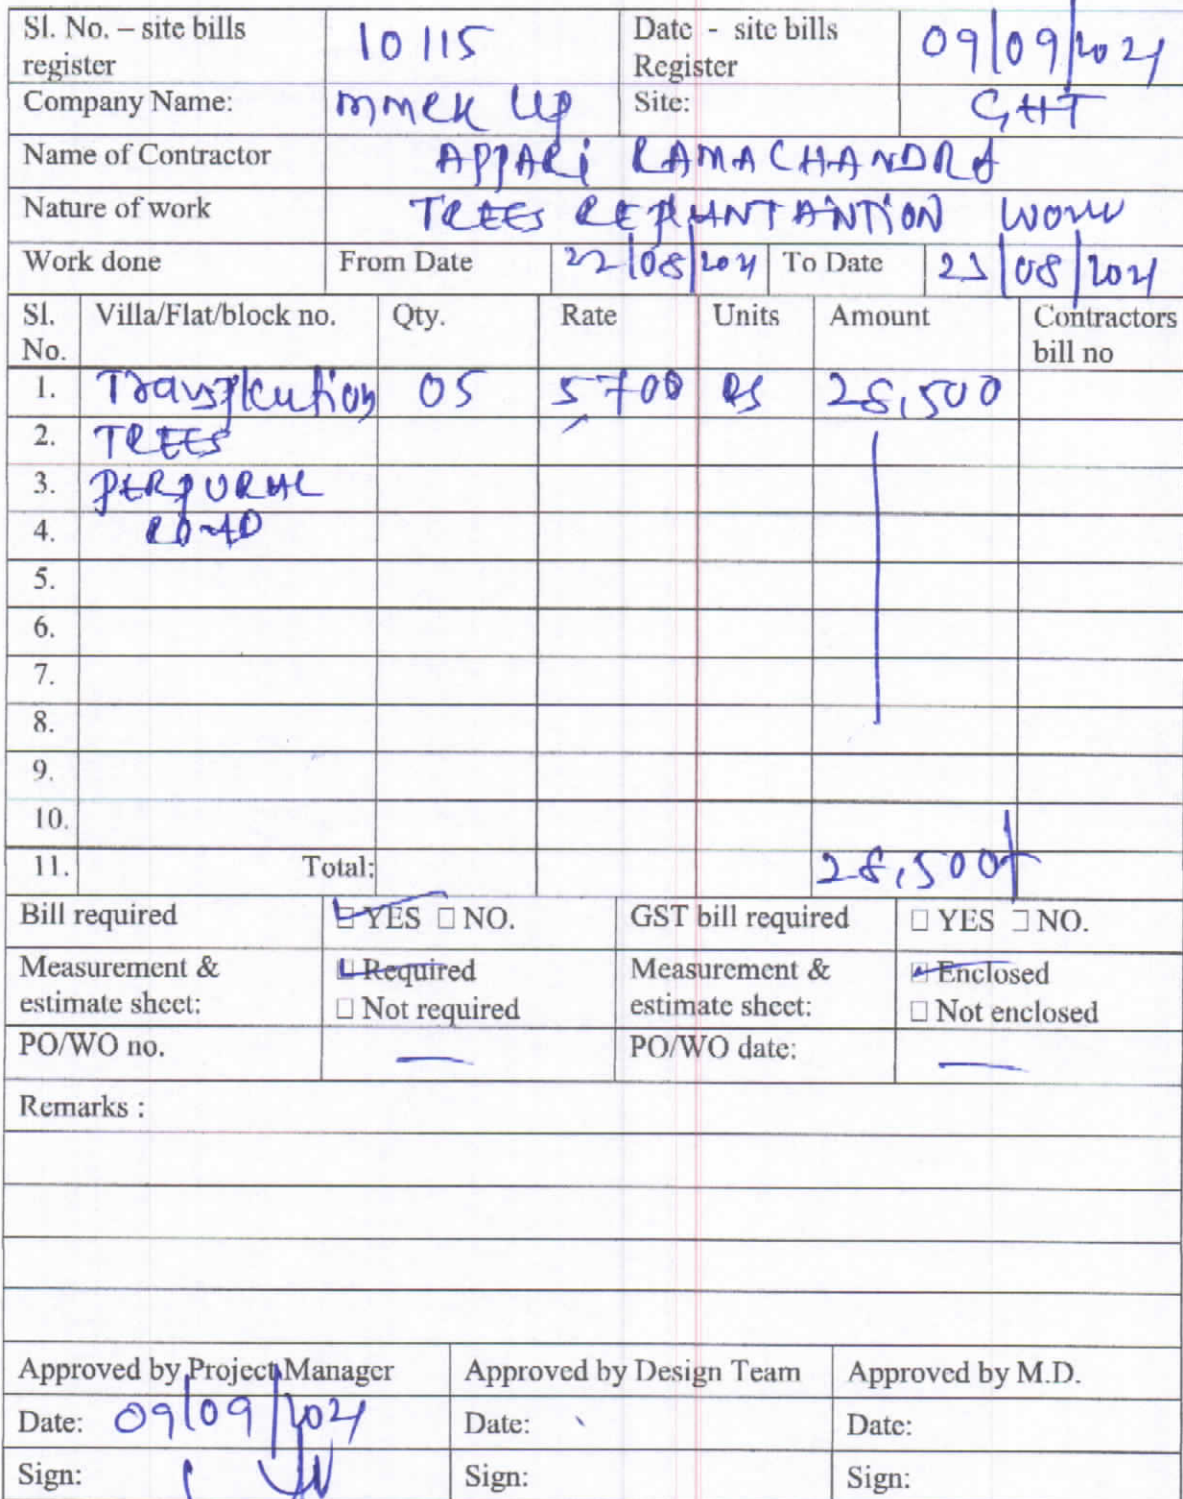 Sl. No. – site bills register 10115 Date - site bills Register 09/09/2021
Company Name: Site: GHT
Name of Contractor APPARI RAMACHANDRA
Nature of work TREES REPLANTANTION WORK
Work done From Date 22/08/2021 To Date 23/08/2021
Sl. No. Villa/Flat/block no. Qty. Rate Units Amount Contractors bill no
1. 05 5700 RS 28,500
2. TREES
3.
4. ROAD
5.
6.
7.
8.
9.
10.
11. Total: 28,500/-
Bill required ☑ YES ☐ NO. GST bill required ☐ YES ☐ NO.
Measurement & estimate sheet: ☑ Required ☐ Not required Measurement & estimate sheet: ☑ Enclosed ☐ Not enclosed
PO/WO no. — PO/WO date: —
Remarks :
Approved by Project Manager Approved by Design Team Approved by M.D.
Date: 09/09/2021 Date: Date:
Sign: Sign: Sign: